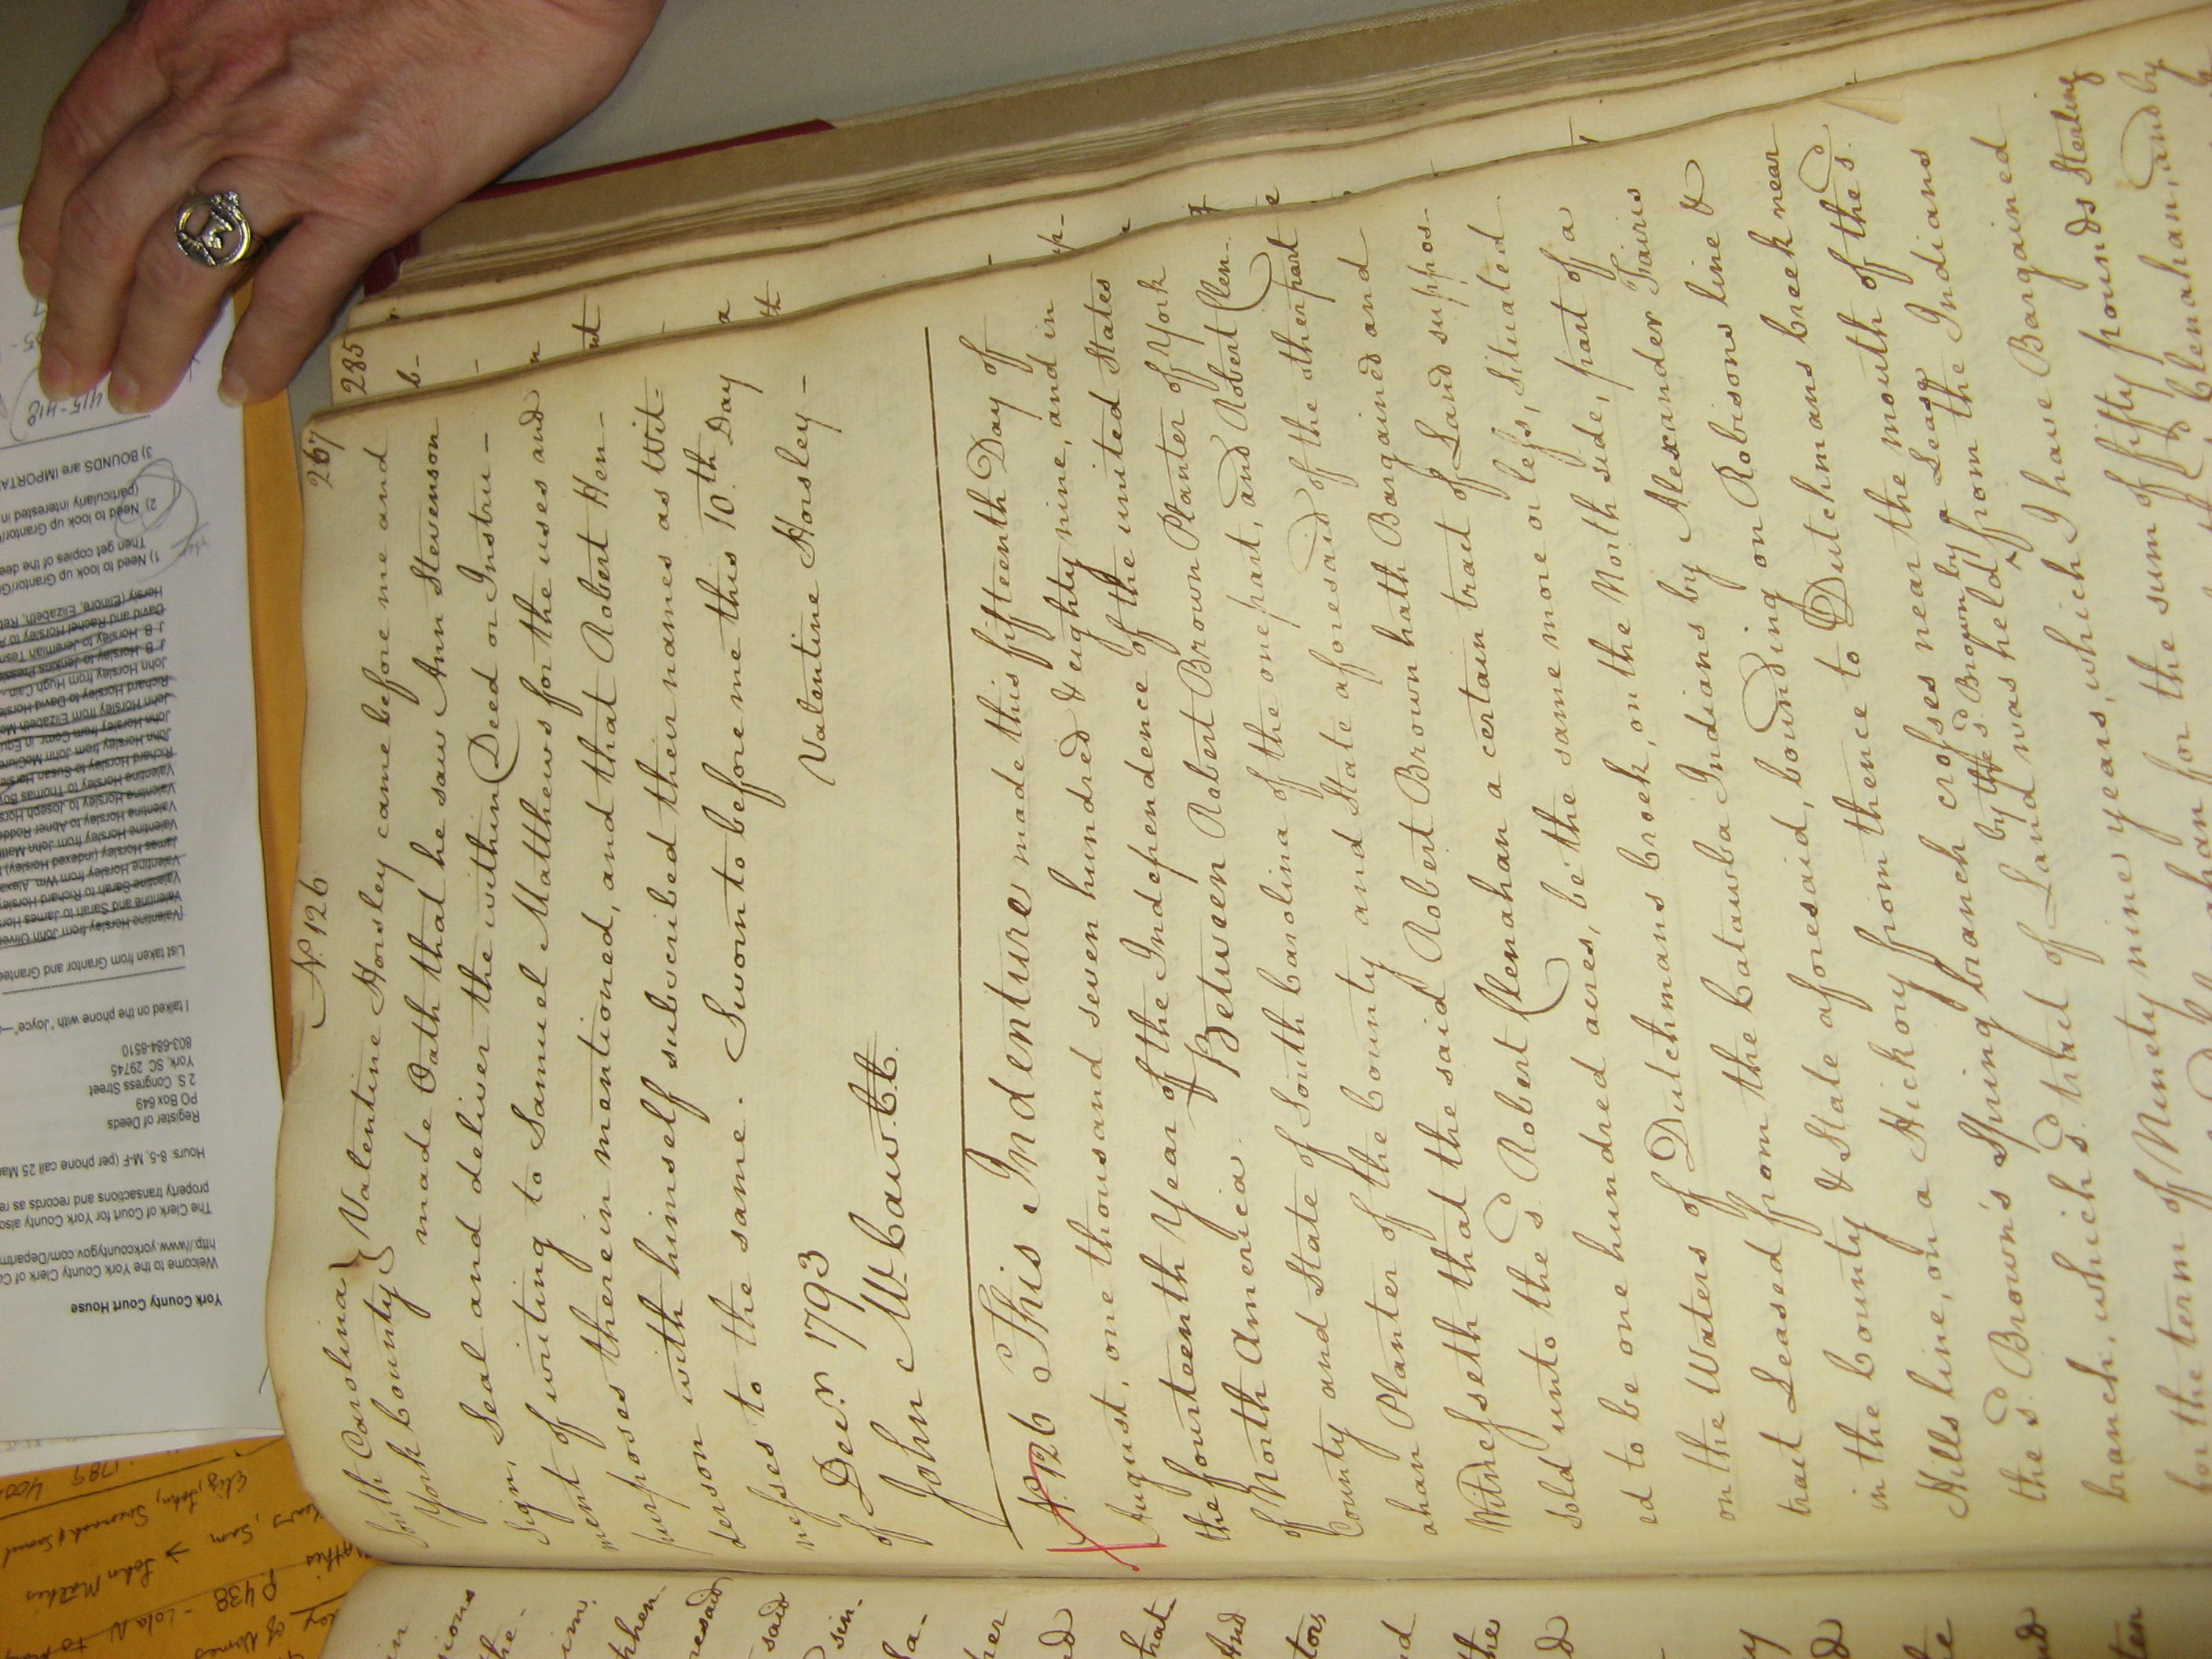 N. 126
267
South Carolina } Valentine Horsley came before me and
York County } made Oath that he saw Ann Stevenson
Sign, Seal and deliver the within Deed or Instru-
ment of writing to Samuel Matthews for the uses and
purposes therein mentioned, and that Robert Hen-
derson with himself subscribed their names as Wit=
nesses to the same. Sworn to before me this 10th Day
of Decr. 1793
Valentine Horsley -
John McCaw. C.C.
N. 126 This Indenture made this fifteenth Day of
August, one thousand seven hundred & eighty nine, and in
the fourteenth Year of the Independence of the united States
of North America. Between Robert Brown Planter of York
County and State of South Carolina of the one part, and Robert Clen-
ahan Planter of the County and State aforesaid of the other part
Witnesseth that the said Robert Brown hath Bargained and
sold unto the sd. Robert Clenahan a certain trait of Land suppos-
ed to be one hundred acres, be the same more or less, Situated
on the Waters of Dutchmans Creek, on the North side, part of a
trait Leased from the Catawba Indians by Alexander Fairis
in the County & State aforesaid, bounding on Robisons line &
Hills line, on a Hickory from thence to Dutchmans Creek near
the sd. Brown's Spring branch crosses near the mouth of the sd.
branch, which sd. trait of Land was held by the sd. Brown by a Lease from the Indians
for the term of Ninety nine years, which I have Bargained
for the sum of fifty pounds Sterling
Clenahan, and by
285
York County Court House
Welcome to the York County Clerk of Co
http://www.yorkcountygov.com/Departm
The Clerk of Court for York County also
property transactions and records as re
Hours: 8-5, M-F (per phone call 25 Mar
Register of Deeds
PO Box 649
2 S. Congress Street
York, SC 29745
803-684-8510
I talked on the phone with "Joyce"—
List taken from Grantor and Grantee
Valentine Horsley from John Olive
Valentine and Sarah to James Hors
Valentine Sarah to Richard Horsle
Valentine Horsley from Wm. Alexa
James Horsley (indexed Horsley)
Valentine Horsley from John Matt
Valentine Horsley to Abner Rodde
Valentine Horsley to Joseph Hors
Valentine Horsley to Thomas Boy
Richard Horsley to Susan Horsle
John Horsley from John McClure
John Horsley from Com in Equi
John Horsley from Elizabeth Mc
Richard Horsley to David Horsle
John Horsley from Hugh Cain
J B. Horsley to Jenkins
J. B. Horsley to Jeremiah
David and Rachel Horsley to A
Horsly (Elinore, Elizabeth, Reb
1) Need to look up Grantor/G
Then get copies of the dee
2) Need to look up Grantor/
(particularly interested in
3) BOUNDS are IMPORTA
415-418
1789
John Mathis
P. 438